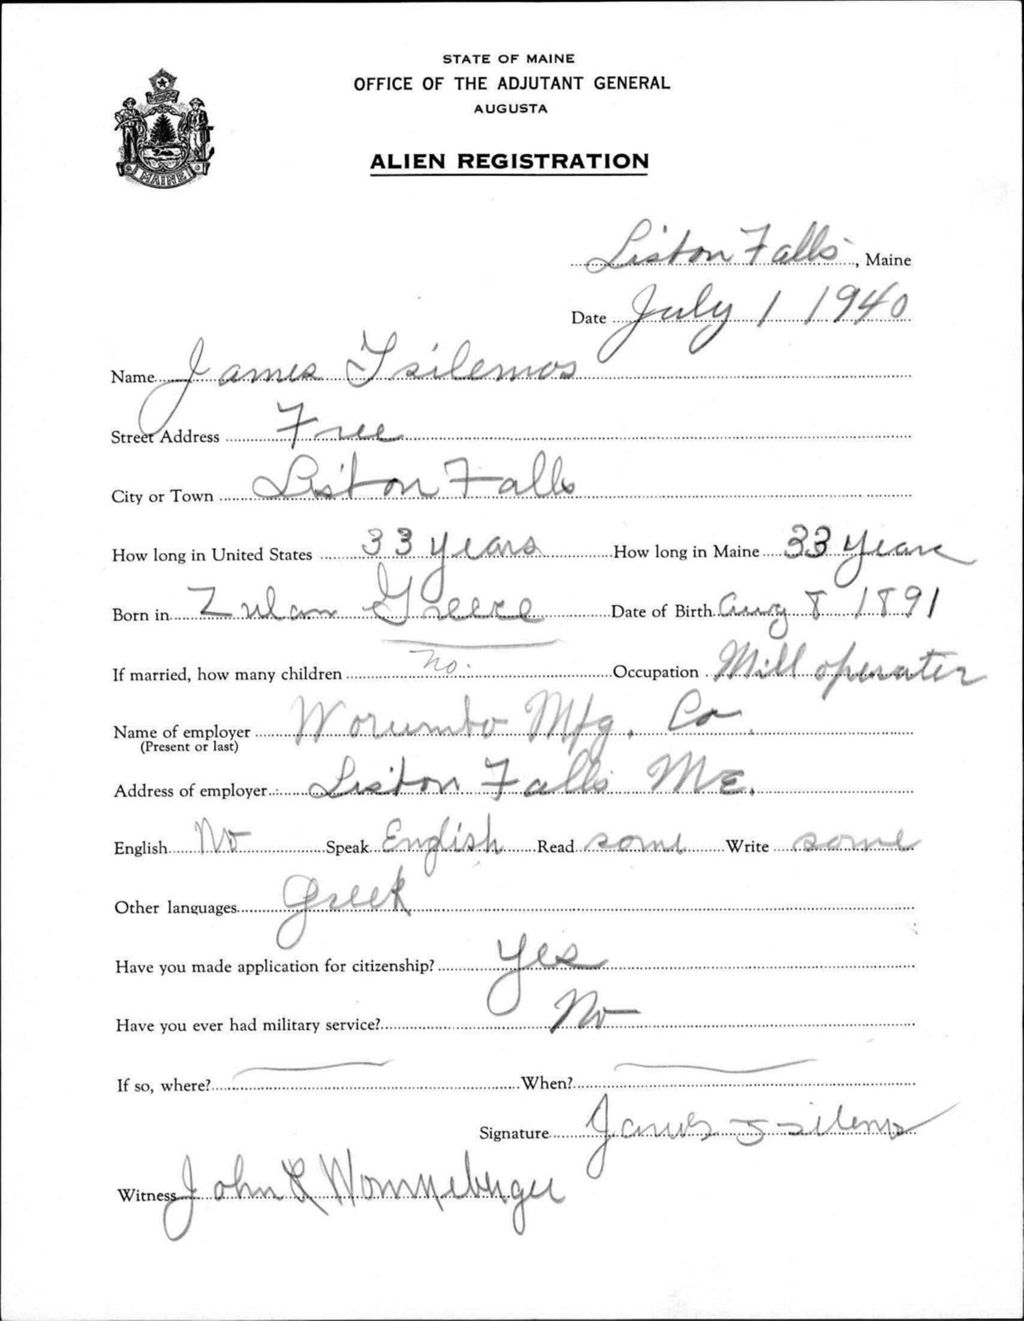 STATE OF MAINE
OFFICE OF THE ADJUTANT GENERAL
AUGUSTA
MAINE
ALIEN REGISTRATION
Lisbon Falls, Maine
Date July 1 1940
Name James Tsilemos
Street Address Free
City or Town Lisbon Falls
How long in United States 33 years How long in Maine 33 years
Born in Greece Date of Birth Aug 8 1891
If married, how many children no. Occupation Mill operater
Name of employer Worumbo Mfg. Co.
(Present or last)
Address of employer Lisbon Falls ME.
English No Speak English Read some Write some
Other languages Greek
Have you made application for citizenship? Yes
Have you ever had military service? No
If so, where? When?
Signature James Tsilemos
Witness John